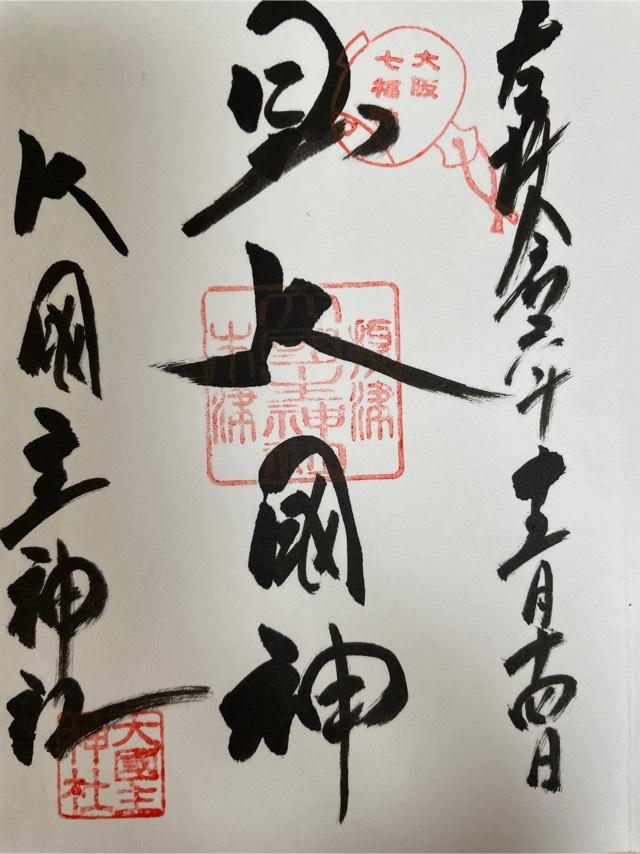 奉拝
令和六年十二月十四日
大阪
七福神
日出大國神
敷津
大國主神社印
木津
大國主神社
大國主
神社